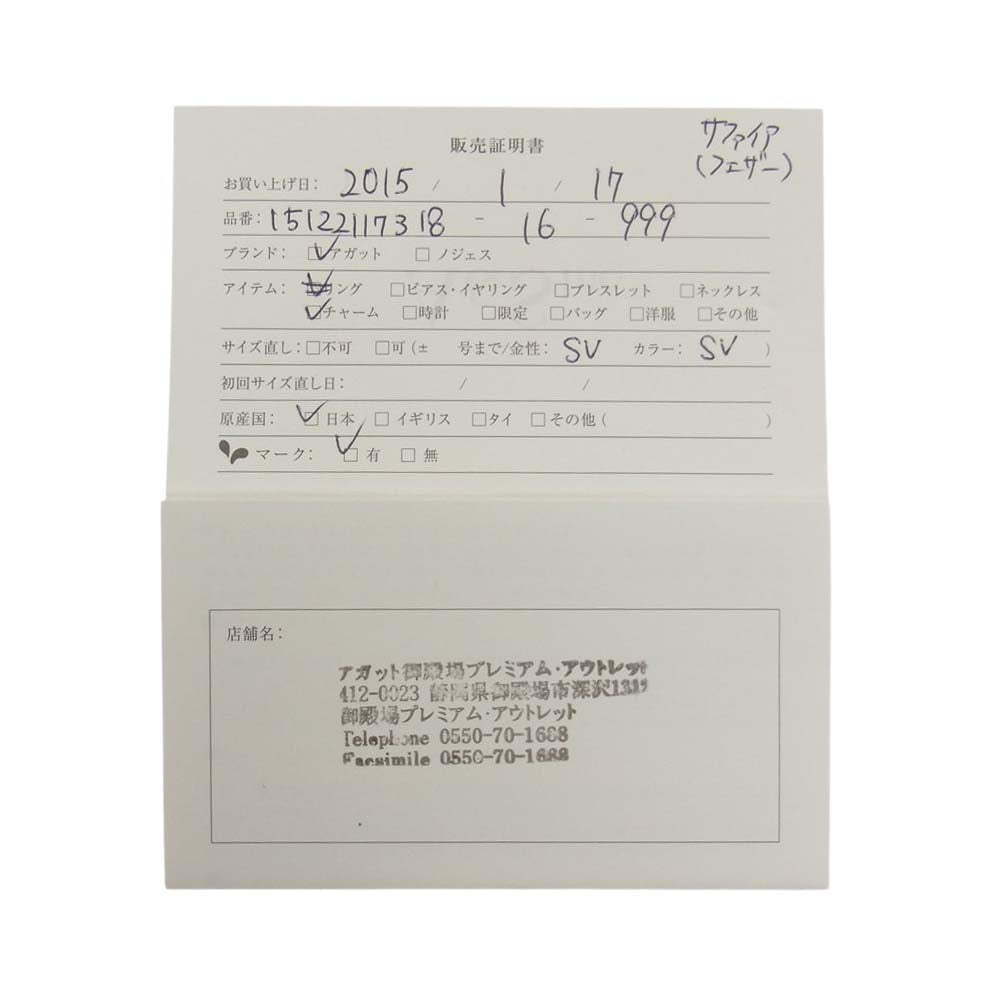 販売証明書
サファイア
(フェザー)
お買い上げ日: 2015 / 1 / 17
品番: 15122117318 - 16 - 999
ブランド: ☑アガット □ ノジェス
アイテム: ☑リング □ピアス・イヤリング □ブレスレット □ネックレス
☑チャーム □時計 □限定 □バッグ □洋服 □その他
サイズ直し: □不可 □可 (± 号まで/金性: SV カラー: SV )
初回サイズ直し日: / /
原産国: ☑日本 □ イギリス □タイ □その他 ( )
マーク: ☑ 有 □ 無
店舗名:
アガット御殿場プレミアム・アウトレット
412-0023 静岡県御殿場市深沢1312
御殿場プレミアム・アウトレット
Telephone 0550-70-1688
Facsimile 0550-70-1688